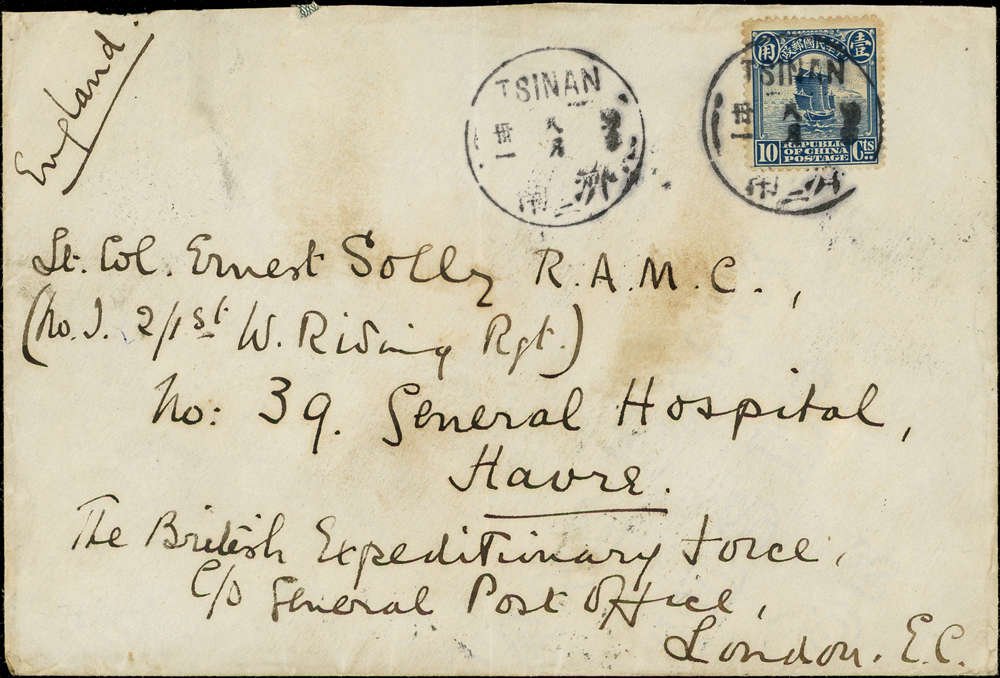 England.
TSINAN
卅一
八月
濟南
壹 中華民國郵政 角
TSINAN
卅一
八月
濟南
10 REPUBLIC OF CHINA POSTAGE Cts
Lt. Col. Ernest Solly R.A.M.C.,
(No. I. 2/1st W. Riding Rgt.)
No: 39. General Hospital,
Havre.
The British Expeditionary Force,
C/o General Post Office,
London. E.C.